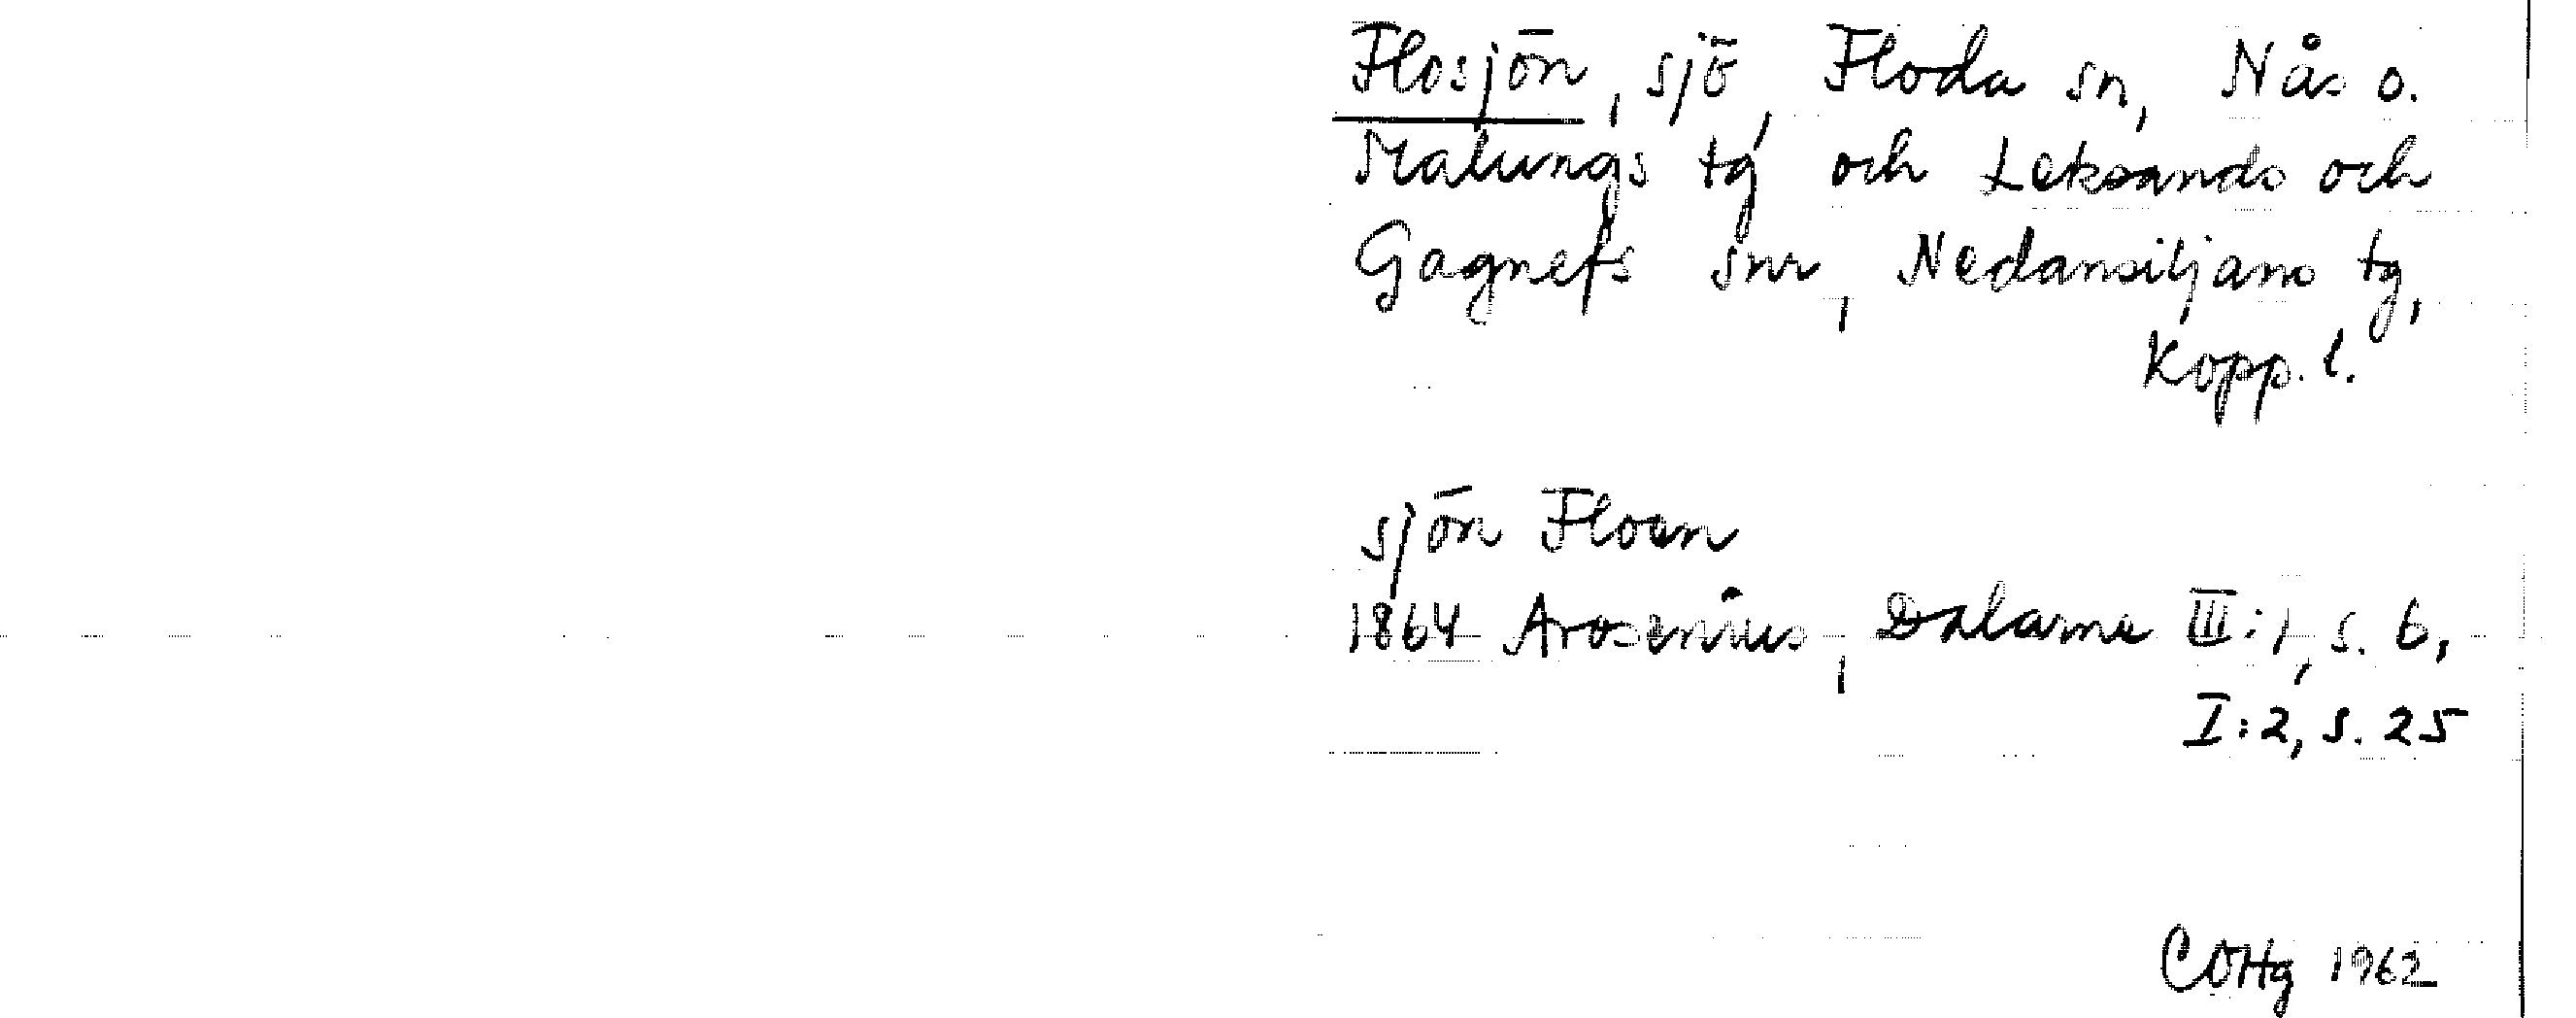 Flosjön, sjö, Floda sn, Nås o.
Malungs tg och Leksands och
Gagnefs snr, Nedansiljans tg,
Kopp. l.
sjön Floen
1864 Arosenius, Dalarne III:1, s. 6,
I:2, s. 25
COHg 1962